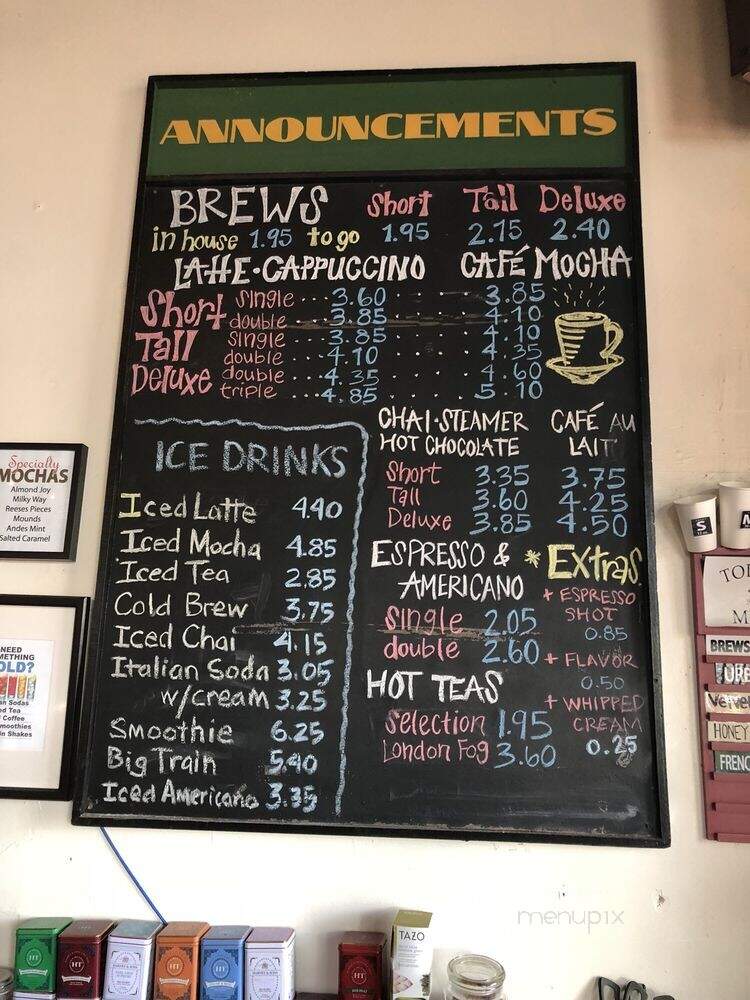 ANNOUNCEMENTS
BREWS Short Tall Deluxe
in house 1.95 to go 1.95 2.15 2.40
LATTE·CAPPUCCINO CAFÉ MOCHA
Short single ... 3.60 . . . . 3.85
double ... 3.85 . . . . 4.10
Tall single ... 3.85 . . . . 4.10
double ... 4.10 . . . . 4.35
Deluxe double ... 4.35 . . . . 4.60
triple ... 4.85 . . . . 5.10
ICE DRINKS
Iced Latte 4.40
Iced Mocha 4.85
Iced Tea 2.85
Cold Brew 3.75
Iced Chai 4.15
Italian Soda 3.05
w/cream 3.25
Smoothie 6.25
Big Train 5.40
Iced Americano 3.35
CHAI·STEAMER CAFÉ AU
HOT CHOCOLATE LAIT
Short 3.35 3.75
Tall 3.60 4.25
Deluxe 3.85 4.50
ESPRESSO &
AMERICANO
single 2.05
double 2.60
HOT TEAS
Selection 1.95
London Fog 3.60
* Extras
+ ESPRESSO
SHOT
0.85
+ FLAVOR
0.50
+ WHIPPED
CREAM
0.25
Specialty
MOCHAS
Almond Joy
Milky Way
Reeses Pieces
Mounds
Andes Mint
Salted Caramel
NEED
OLD?
S
BREWS
HONEY
FRENC
HT
HT
TAZO
menupix